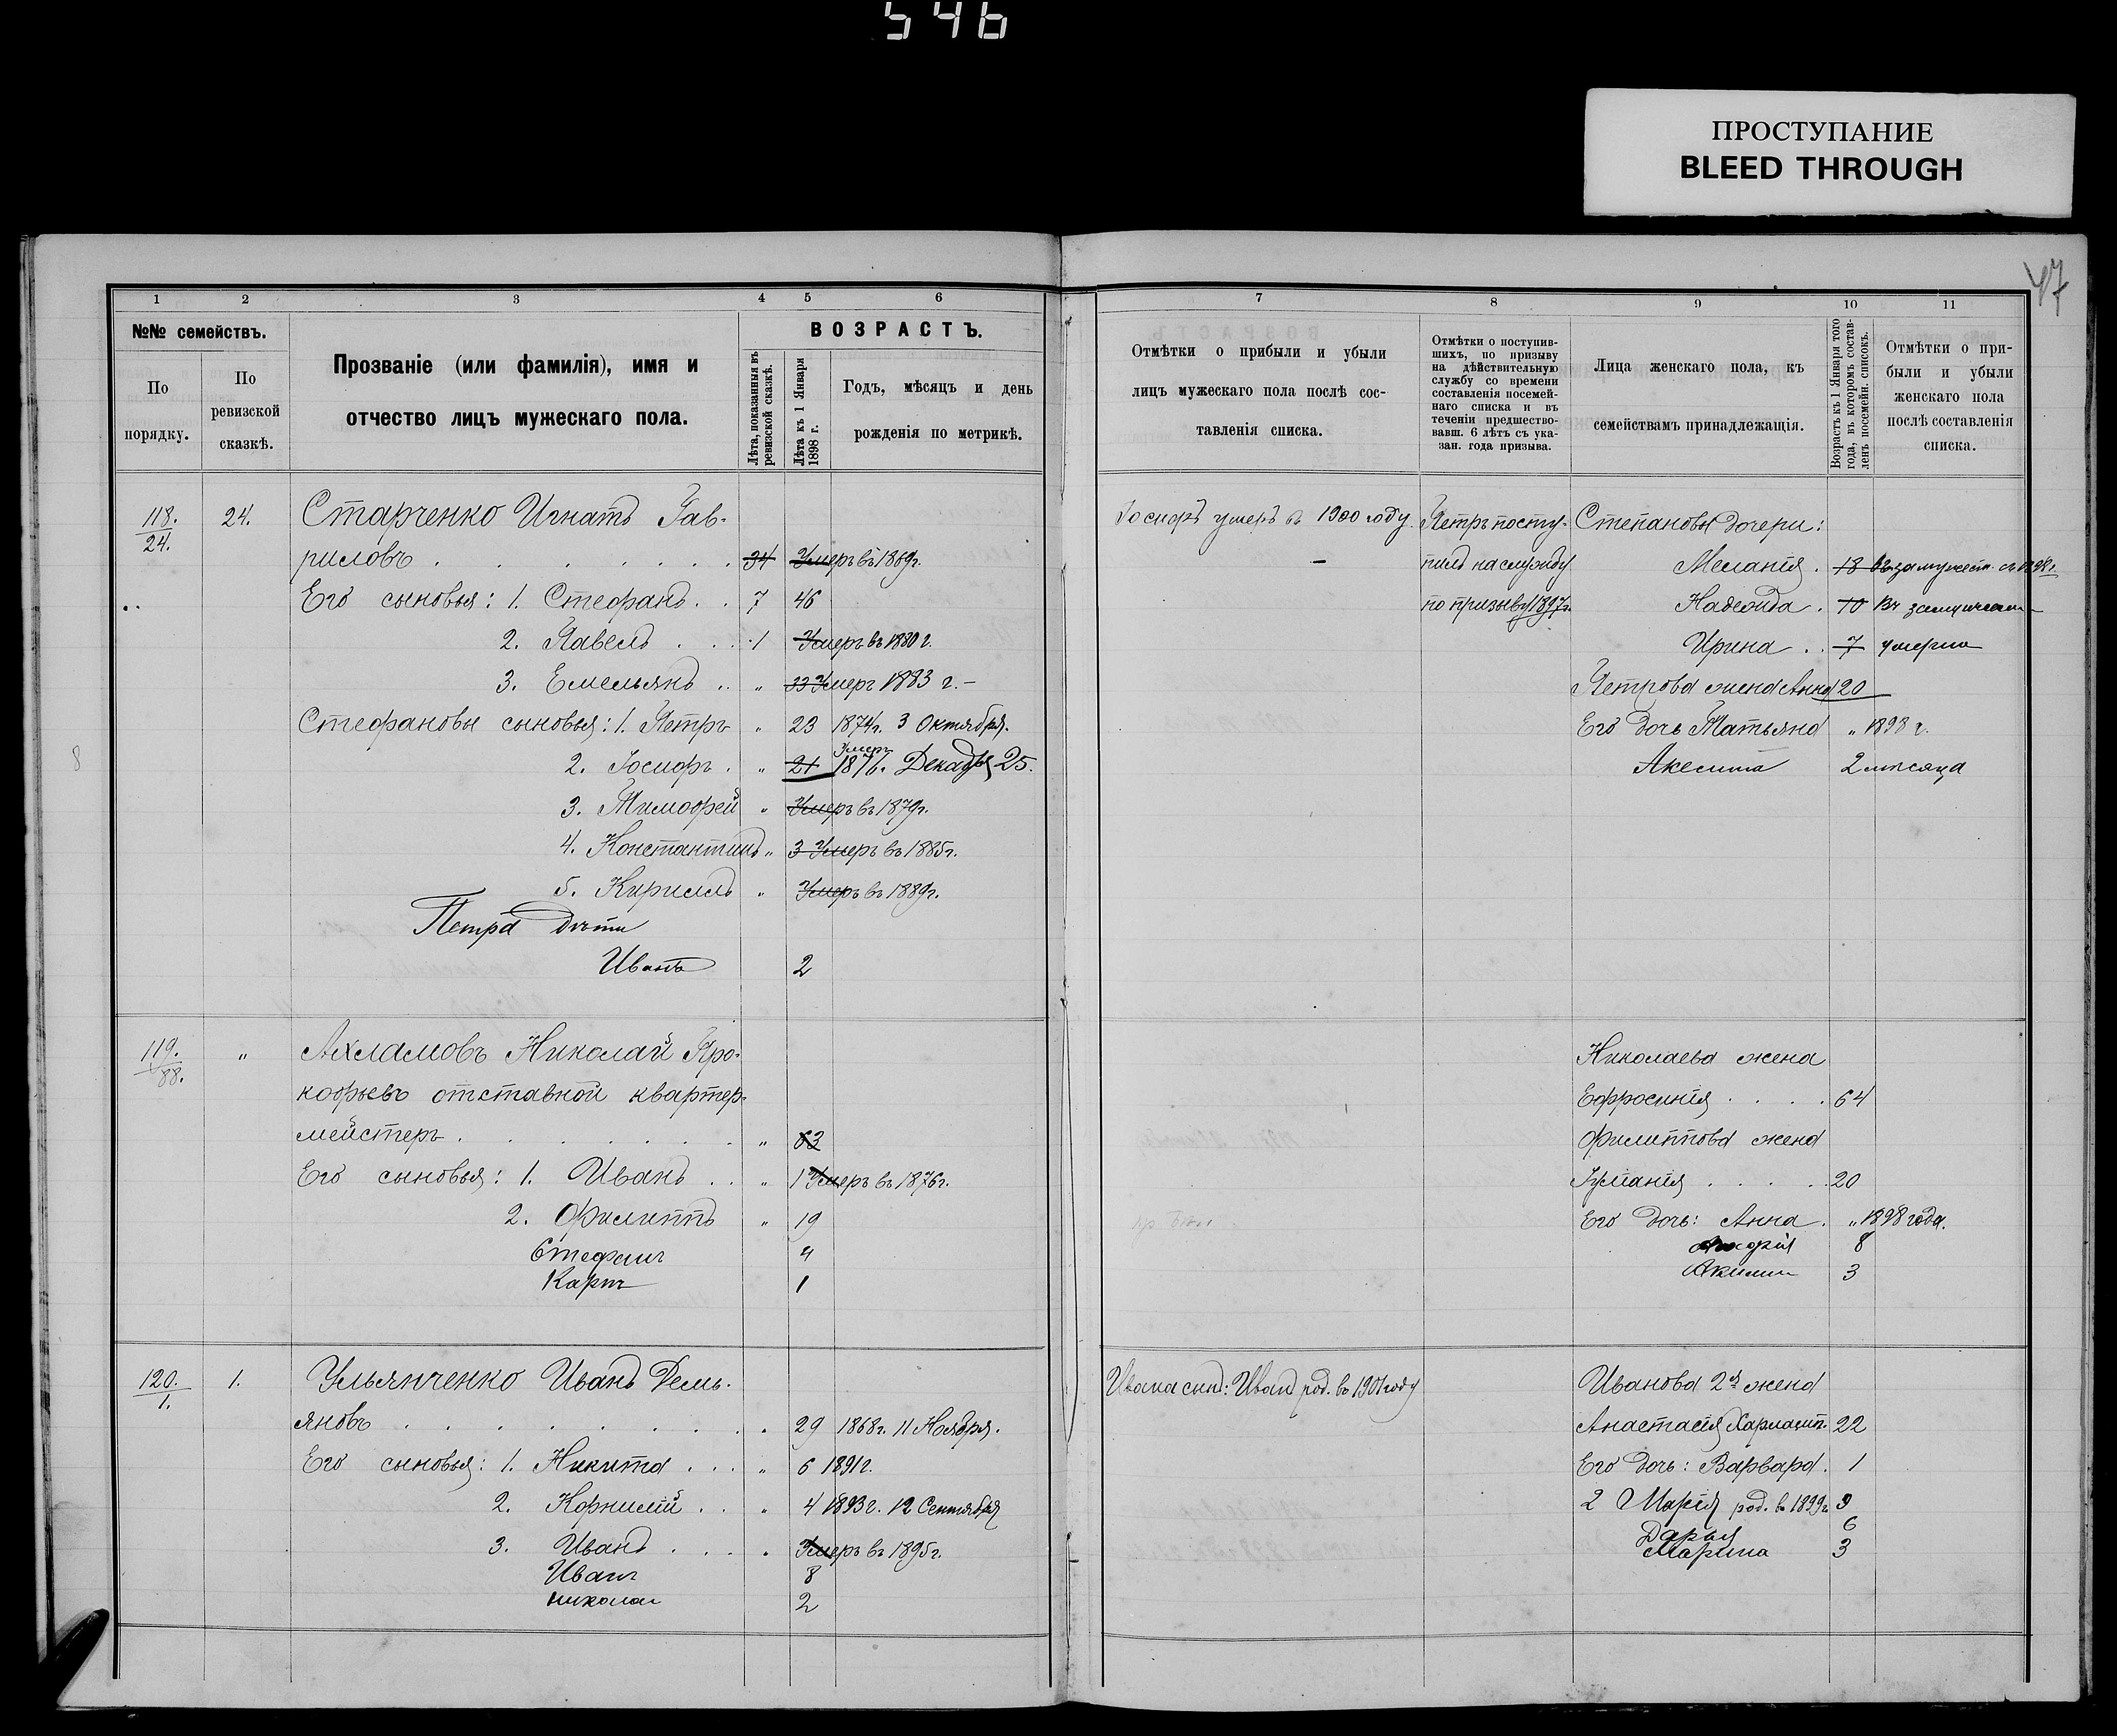 546
ПРОСТУПАНИЕ
BLEED THROUGH
47
1 2 3 4 5 6
№№ семействъ.
По порядку.
По ревизской сказкѣ.
Прозваніе (или фамилія), имя и
отчество лицъ мужескаго пола.
ВОЗРАСТЪ.
Лѣта, показанныя въ ревизской сказкѣ.
Лѣта къ 1 Января 1898 г.
Годъ, мѣсяцъ и день
рожденія по метрикѣ.
118. 24. Старченко Игнатъ Гав-
24.
риловъ 34 Умеръ въ 1869г.
Его сыновья: 1. Стефанъ 7 46
2. Павелъ 1 Умеръ въ 1880 г.
3. Емельянъ „ 33 Умеръ 1883 г.
Стефановы сыновья: 1. Петръ „ 23 1874г. 3 Октября.
умеръ
2. Іосифъ „ 21 1876. Декабря 25.
3. Тимофей „ Умеръ въ 1879г.
4. Константинъ „ 3 Умеръ въ 1885г.
5. Кириллъ „ Умеръ въ 1889г.
Петра дѣти
Иванъ 2
119. „ Ахламовъ Николай Про-
88.
кофьевъ отставной квартер-
мейстеръ „ 63
Его сыновья: 1. Иванъ „ 1 Умеръ въ 1876г.
2. Филиппъ „ 19
Стефанъ 4
Карпъ 1
120. 1. Ульянченко Иванъ Демь-
1.
яновъ 29 1868г. 11 Ноября.
Его сыновья: 1. Никита „ 6 1891г.
2. Корнилій „ 4 1893г. 12 Сентября
3. Иванъ Умеръ въ 1895г.
Иванъ 8
Николай 2
7 8 9 10 11
Отмѣтки о прибыли и убыли
лицъ мужескаго пола послѣ сос-
тавленія списка.
Отмѣтки о поступив-
шихъ, по призыву
на дѣйствительную
службу со времени
составленія посемей-
наго списка и въ
теченіи предшество-
вавш. 6 лѣтъ съ ука-
зан. года призыва.
Лица женскаго пола, къ
семействамъ принадлежащія.
Возрастъ къ 1 Января того
года, въ которомъ состав-
ленъ посемейн. списокъ.
Отмѣтки о при-
были и убыли
женскаго пола
послѣ составленія
списка.
Іосифъ умеръ въ 1900 году. Петръ посту- Степановы дочери:
пилъ на службу Меланія 18 въ замужест. съ 1898г.
по призыву 1897г. Надежда 10 Въ замужест
Ирина 7 умерла
Петрова жена Анна 20
Его дочь Татьяна „ 1898 г.
2 мѣсяца
Николаева жена
Ефросинія 64
Филиппова жена
20
Его дочь: Анна „ 1898 года.
8
Акилина 3
Ивана сынъ: Иванъ род. въ 1901 году Иванова 2я жена
Анастасія Харламп. 22
Его дочь: Варвара. 1
2 Марія род. въ 1899г. 9
Дарья 6
Марина 3